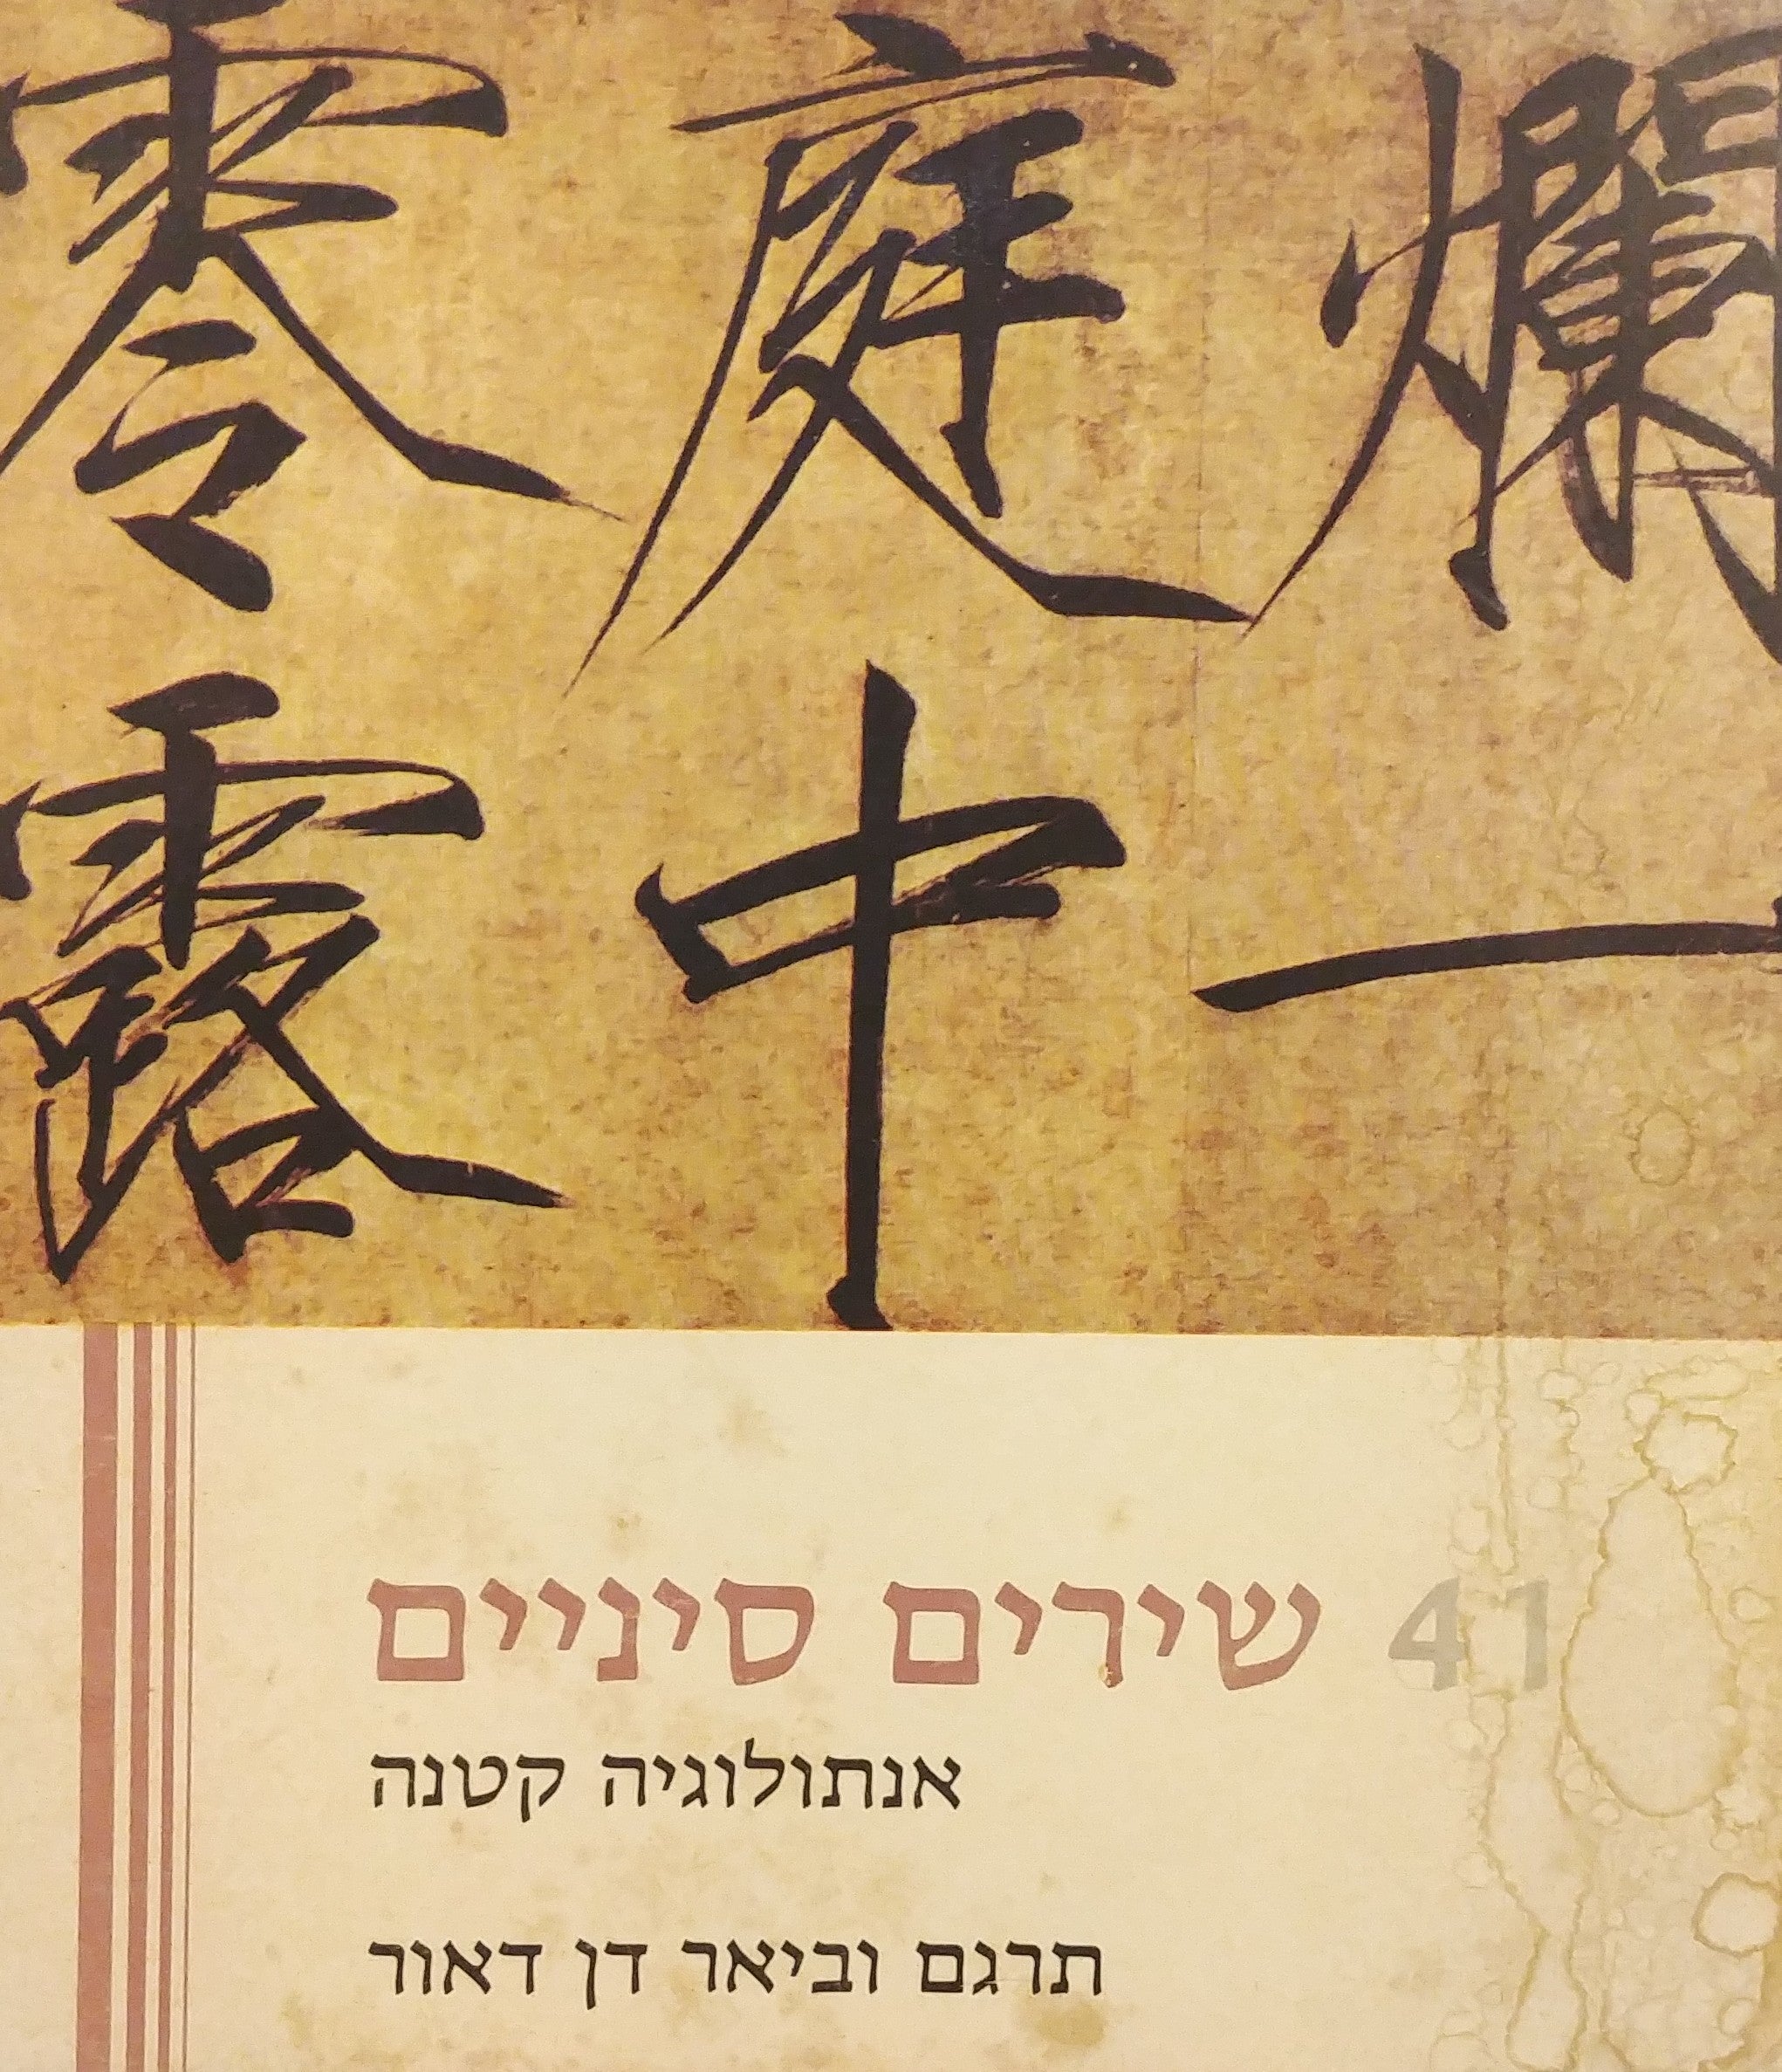 爛一
庭中
零露
41 שירים סיניים
אנתולוגיה קטנה
תרגם וביאר דן דאור